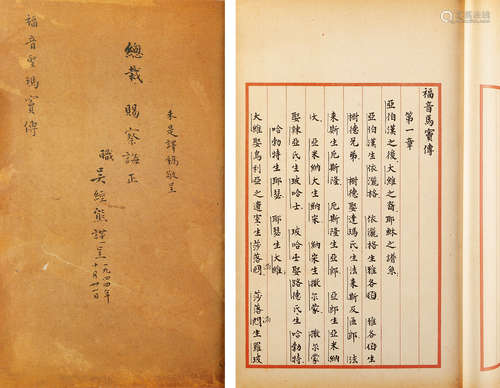 福音聖瑪竇傳
未是譯稿敬呈
總裁 賜察詧正
職吳經熊譯呈
一九四四年
十月廿一日
福音馬竇傳
第一章
亞伯漢之後大維之裔耶穌之譜系
亞伯漢生依灑格 依灑格生雅各伯 雅各伯生
樹德兄弟 樹德娶達瑪氏生法來斯及匝郎 法
來斯生厄斯隆 厄斯隆生亞郎 亞郎生亞米納
大 亞米納大生納宋 納宋生撒尔蒙 撒尔蒙
娶辣亞氏生玻哈士 玻哈士娶路德氏生哈勃特
哈勃特生耶瑟 耶瑟生大維
大維娶烏利亞之遺室生莎落門 莎落門生羅玻